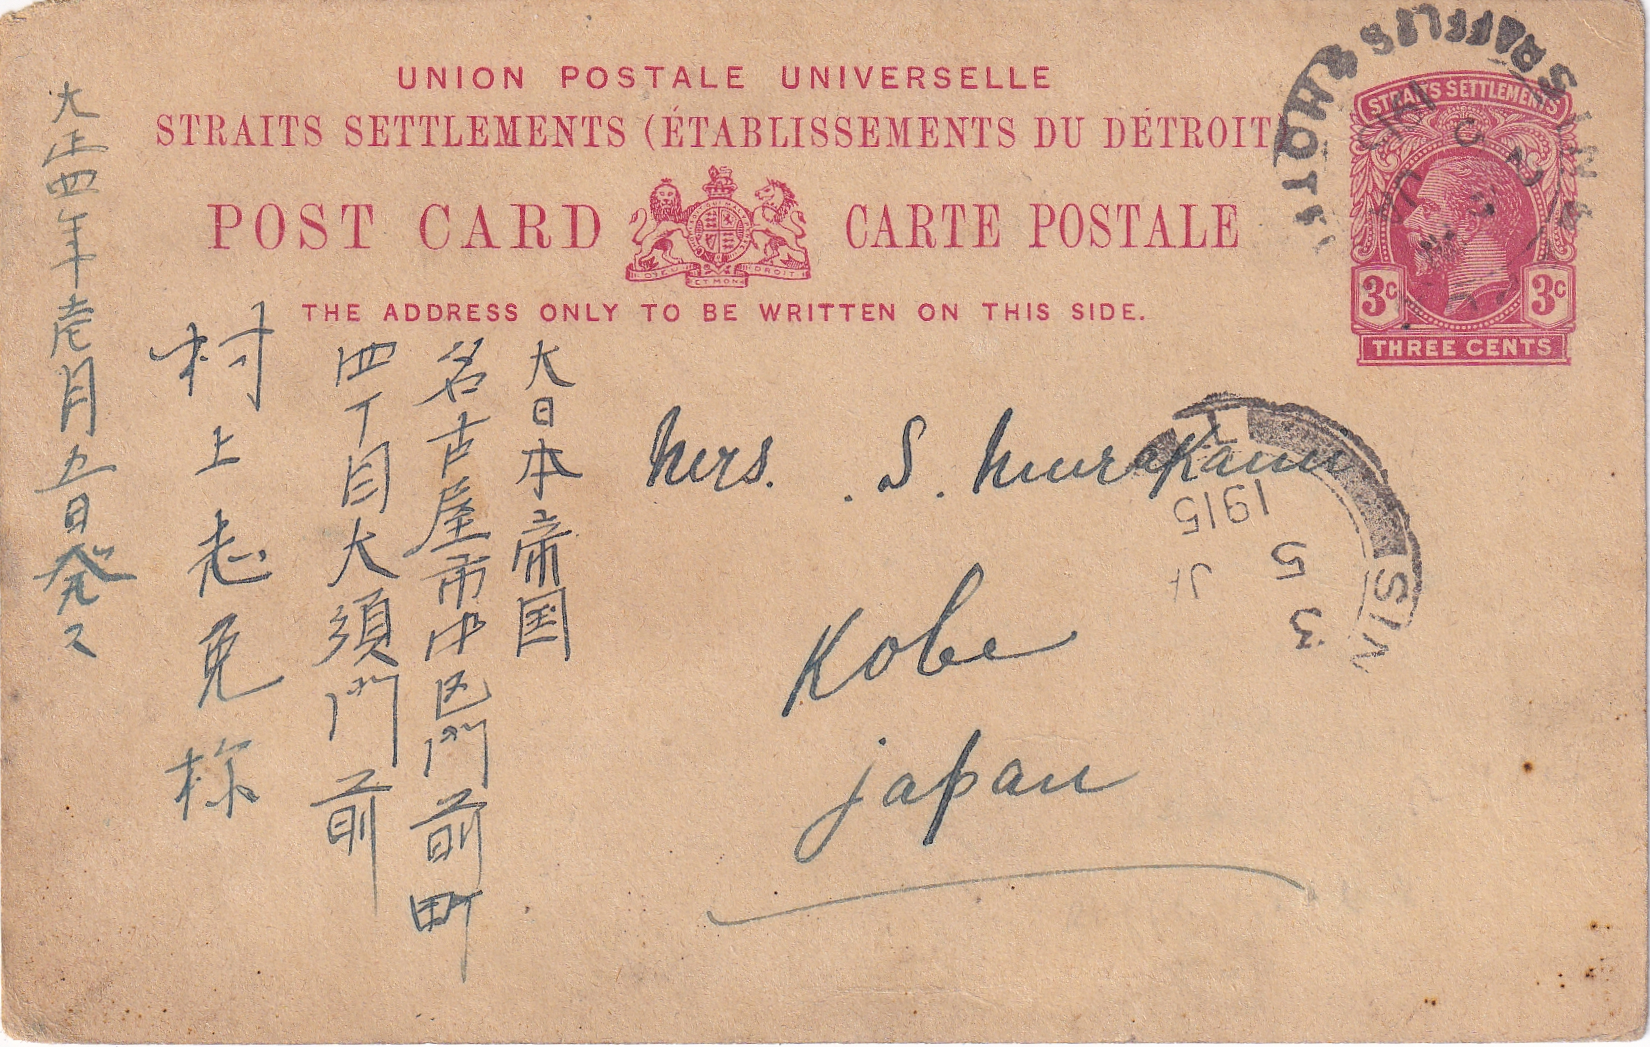 UNION POSTALE UNIVERSELLE
STRAITS SETTLEMENTS (ÉTABLISSEMENTS DU DÉTROIT
POST CARD
CARTE POSTALE
DIEU ET MON DROIT
THE ADDRESS ONLY TO BE WRITTEN ON THIS SIDE.
STRAITS SETTLEMENTS
3c
3c
THREE CENTS
RAFFLES HOTEL
1915
SIN
1915
5
3
Mrs. S. Murakami
Kobe
Japan
大日本帝国
名古屋市中区門前町
四丁目大須門前
村上志免様
大正四年壱月五日発ス